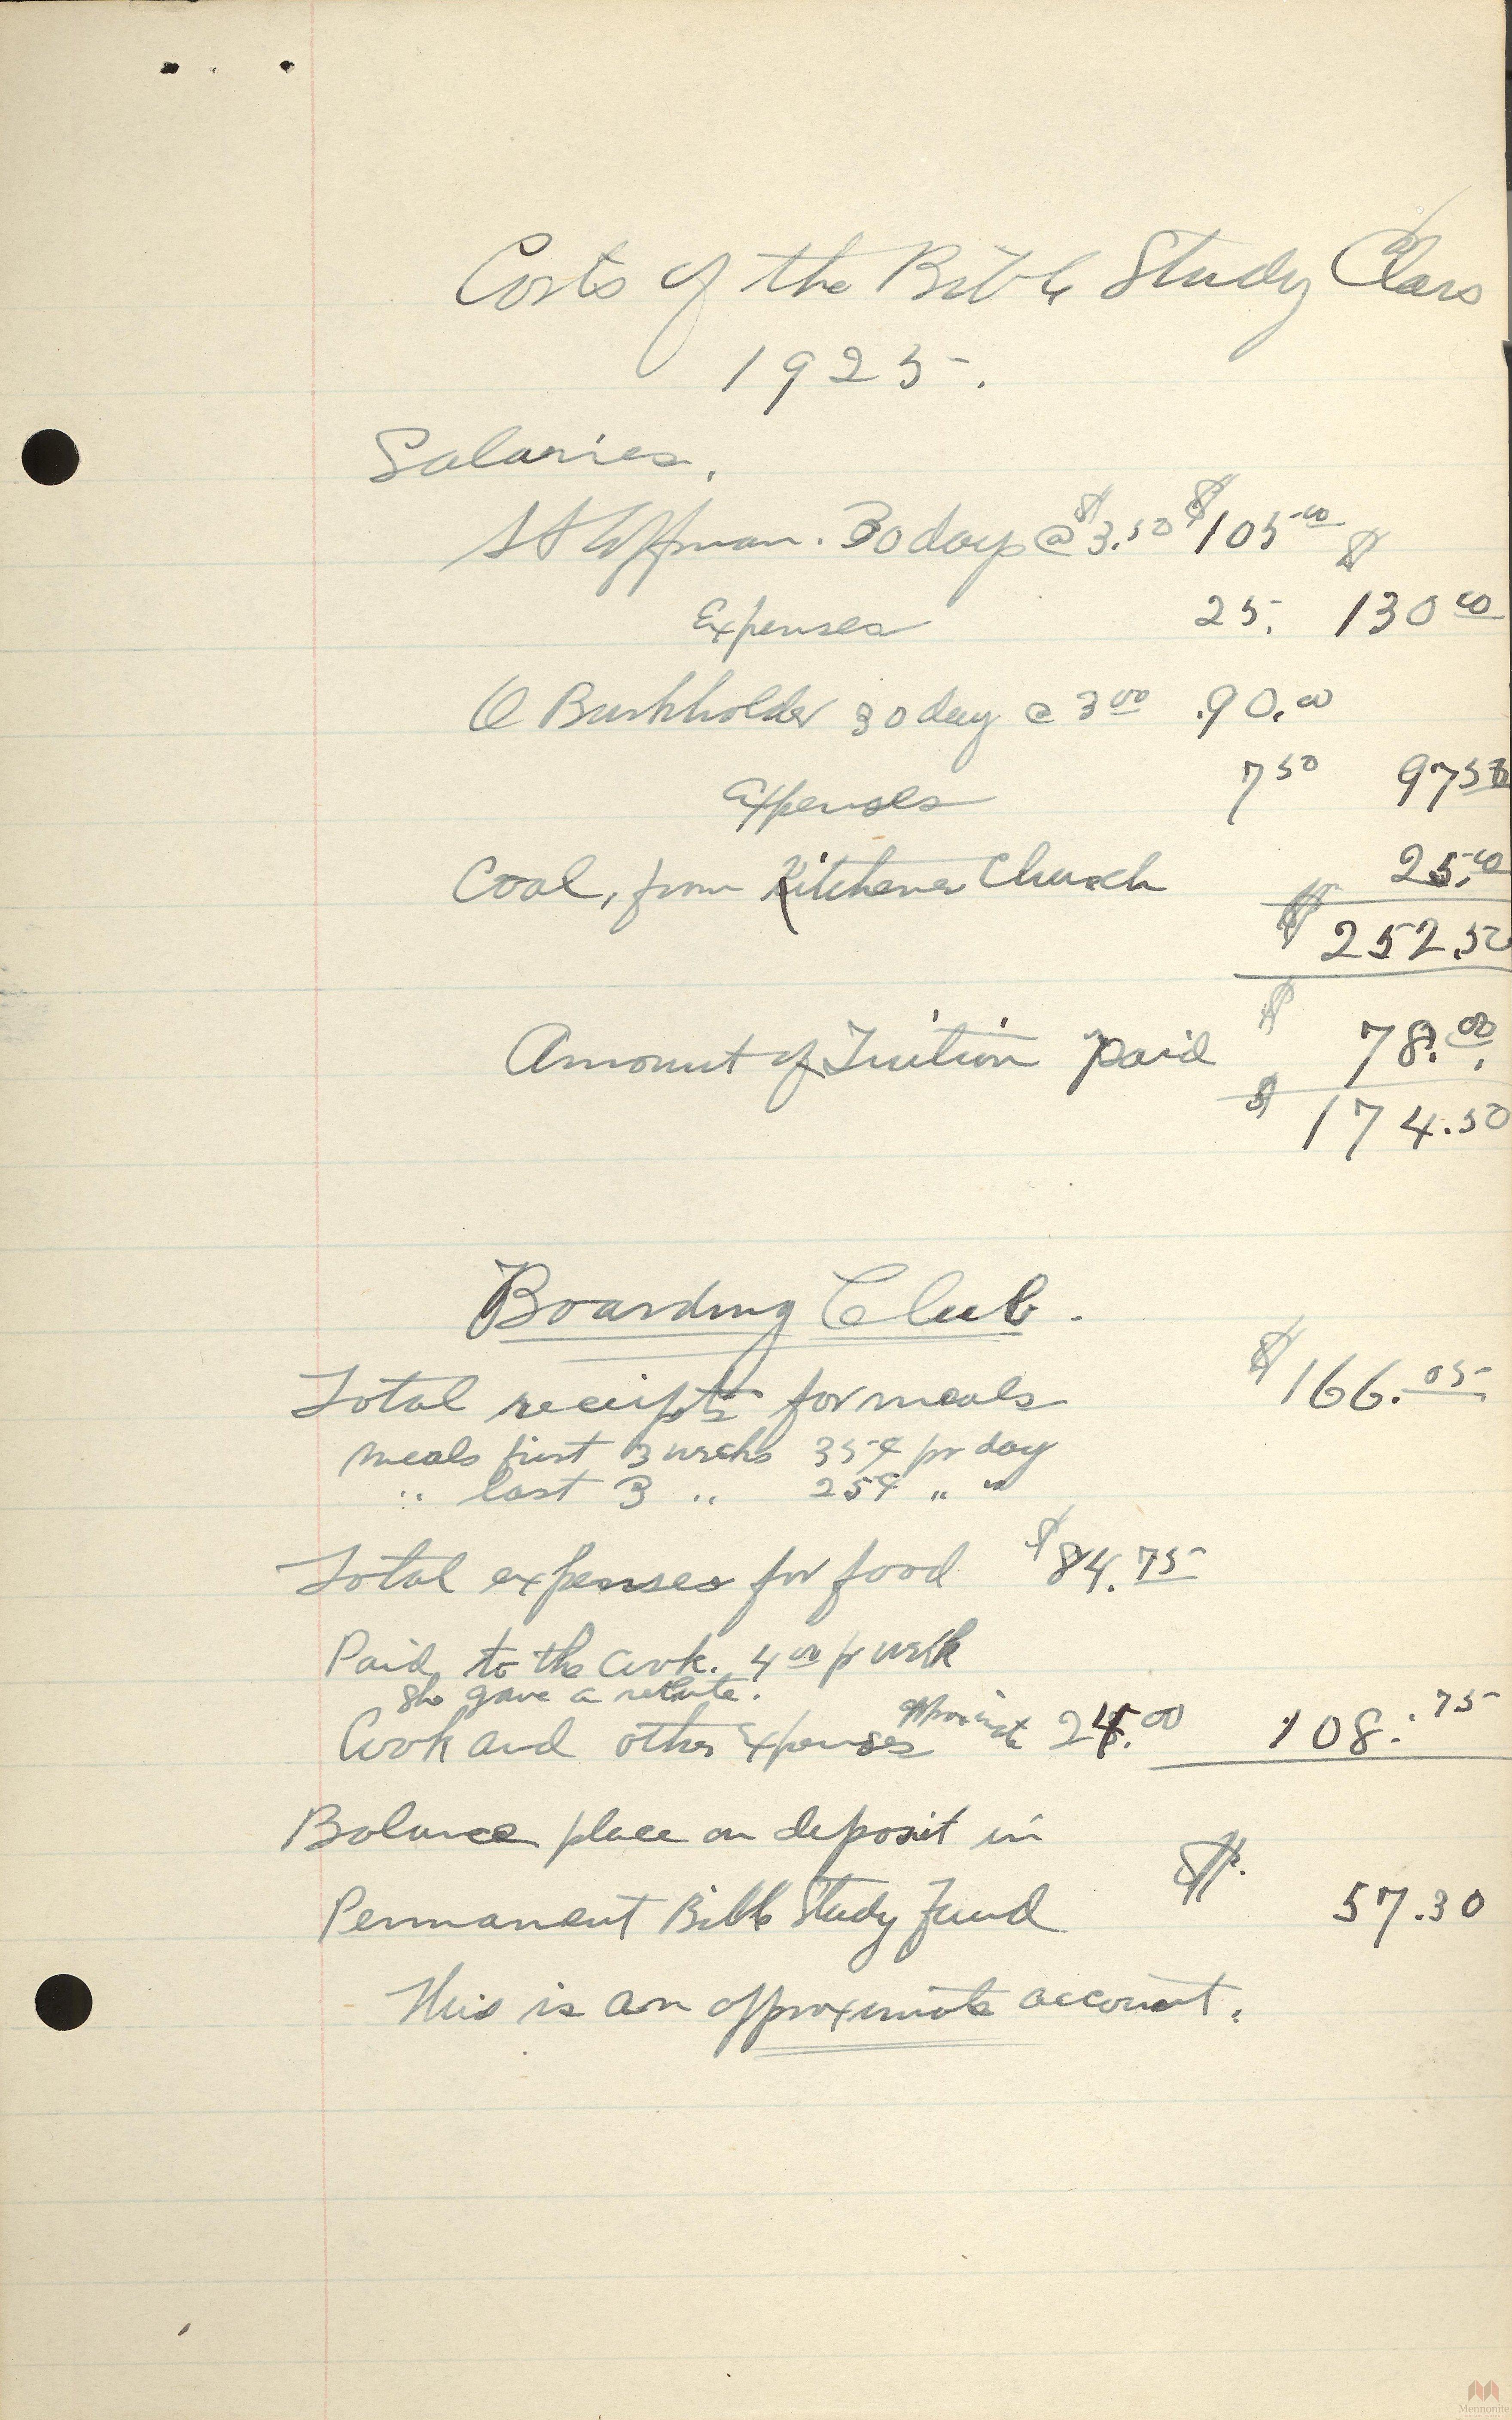 Costs of the Bible Study Class
1925.
Salaries.
S F Coffman. 30 days @ $3.50 $105.00 $
Expenses 25. 130 00
O Burkholder 30 day @ 3 00 .90.00
Expenses 7 50 97 50
Coal, from Kitchener Church 25.00
$ 252.50
Amount of Tuition paid $ 78.00
$ 174.50
Boarding Club.
Total receipts for meals $166.05
Meals first 3 weeks 35¢ pr day
" last 3 " 25¢ " "
Total expenses for food $84.75
Paid to the cook. 4 00 pr week
She gave a rebate.
Cook and other Expenses approximate 24.00 108.75
Balance place on deposit in
Permanent Bible Study Fund $ 57.30
This is an approximate account.
Mennonite